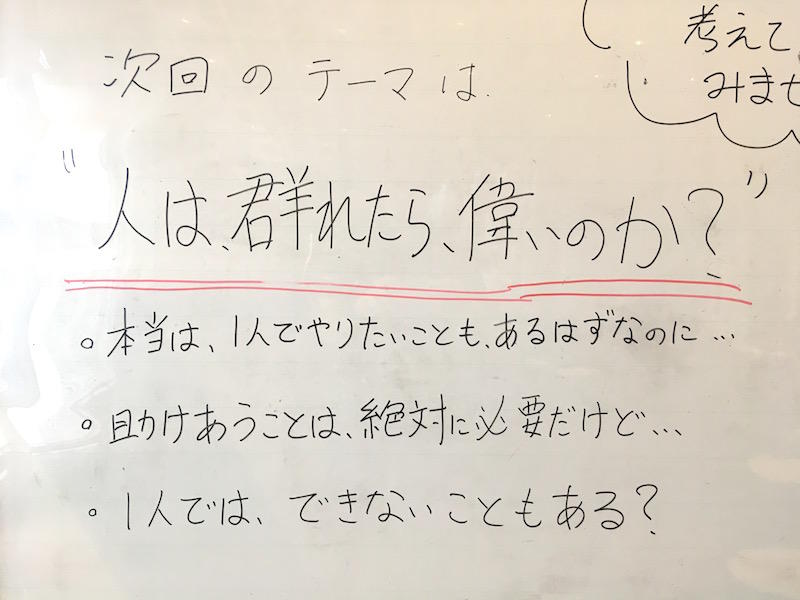 次回のテーマは
"人は、群れたら、偉いのか?"
。本当は、1人でやりたいことも、あるはずなのに…
。助けあうことは、絶対に必要だけど…
。1人では、できないこともある?
考えて
みませ